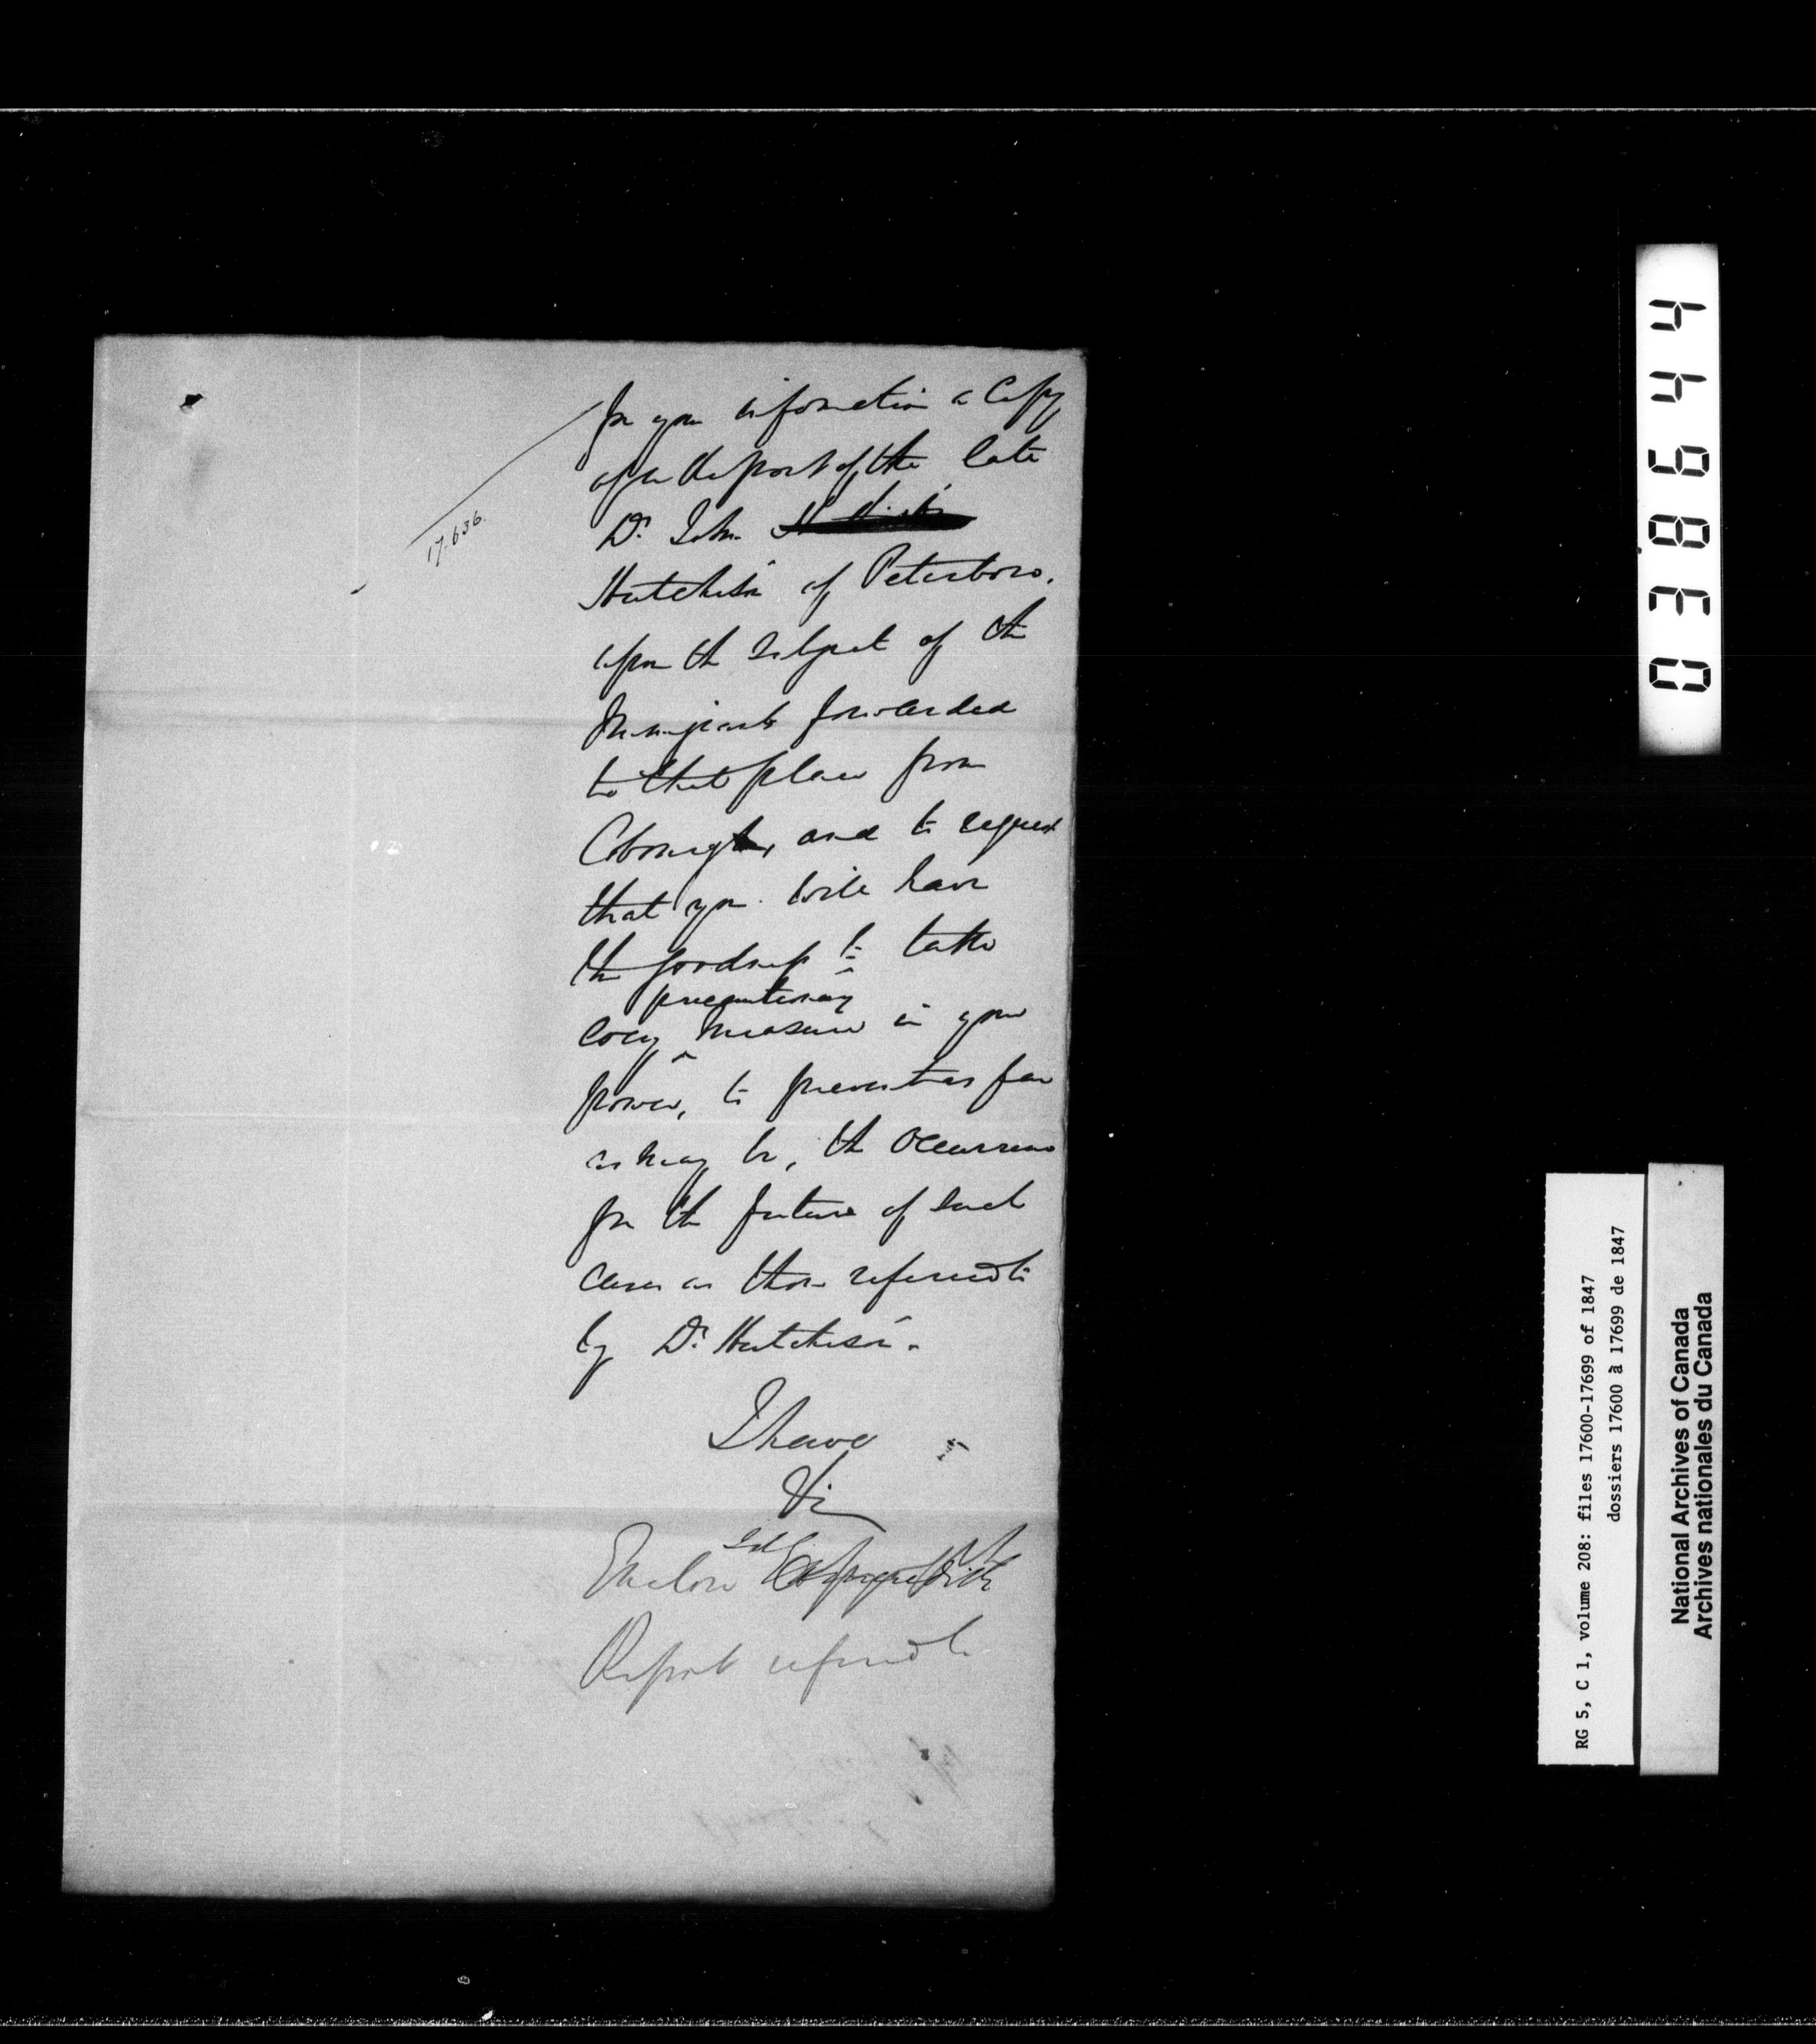 for your information a Copy
of a Report of the late
17.636.
Dr. John
Hutchison of Peterboro,
upon the subject of the
Immigrants forwarded
to that place from
Cobourg, and to request
that you will have
the goodness to take
precautionary
every measure in your
power, to prevent as far
as may be, the occurrence
for the future of such
cases as those referred to
by Dr. Hutchison.
I have
Sd
Enclose
Report referred to
038644
RG 5, C 1, volume 208: files 17600-17699 of 1847
dossiers 17600 à 17699 de 1847
National Archives of Canada
Archives nationales du Canada